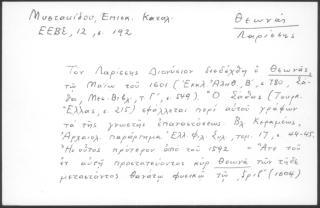 Μυστακίδου, Επισκ. Καταλ.
Θεωνάς
ΕΕΒΣ, 12, σ. 192
Λαρίσσης
Τον Λαρίσσης Διονύσιον διεδέχθη ὁ Θεωνᾶς
τῷ Μαΐῳ τοῦ 1601 (Ἐκκλ. Ἀλήθ. Β', σ. 780, Σά-
θα, Μεσ. Βιβλ. τ. Γ', σ. 549). Ὁ Σάθας (Τουρκ.
Ἑλλάς, σ. 215) σφάλλεται περὶ αὐτοῦ γράφων
τὰ τῆς γνωστῆς ἐπαναστάσεως. Βλ. Κεραμέως,
Ἀρχαιολ. παράρτημα Ἑλλ. Φιλ. Συλ., τομ. 17, σ. 44-45.
Ἦν οὗτος πρότερον ἀπὸ τοῦ 1592 - "Ἀπὸ τοῦ
ἔτι αὐτῇ προστατεύοντος κὺρ Θεωνᾶ τῶν τῇδε
μεταστάντος θανάτῳ φυσικῷ τῷ ͵ζριβ' (1604)